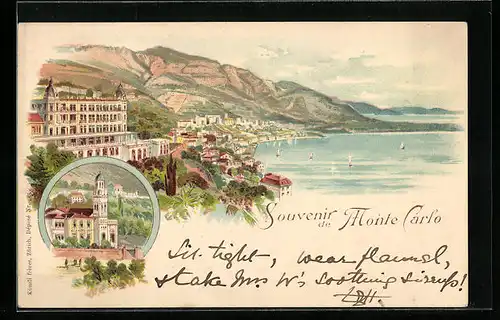 Souvenir
de Monte Carlo
Sit tight, wear flannel,
& take Mrs W's soothing sirup!
Künzli frères, Zürich, Déposé